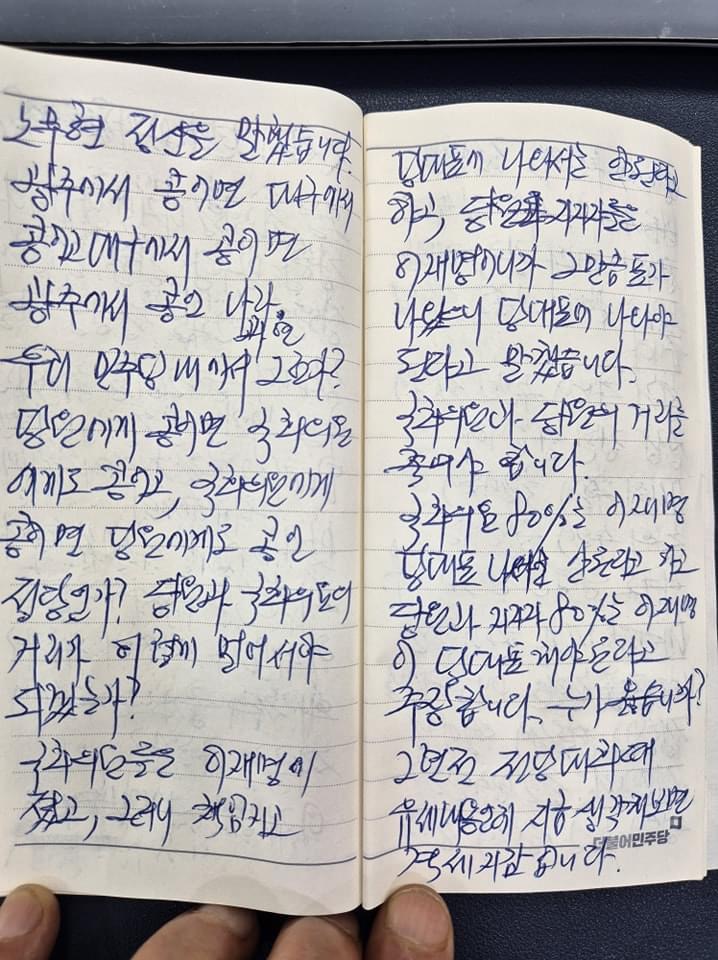 노무현 정신을 말했습니다.
광주에서 콩이면 대구에서
콩이고 대구에서 콩이면
광주에서 콩인 나라.
과연
우리 민주당 내에서 그런가?
당원에게 콩이면 국회의원
에게도 콩이고, 국회의원에게
콩이면 당원에게도 콩인
정당인가? 당원과 국회의원의
거리가 이렇게 멀어서야
되겠는가?
국회의원들은 이재명이
졌고, 그러니 책임지고
당대표에 나와서는 안된다고
하고, 당원과 지지자들은
이재명이니까 그만큼 표가
나왔으니 당대표에 나와야
된다고 말했습니다.
국회의원과 당원의 거리를
좁여야 합니다.
국회의원 80%는 이재명
당대표 나와선 안된다고 하고
당원과 지지자 80%는 이재명
이 당대표 해야 된다고
주장합니다. 누가 옳습니까?
2년전 전당대회 때
유세내용인데 지금 생각해보면
격세지감입니다.
더불어민주당